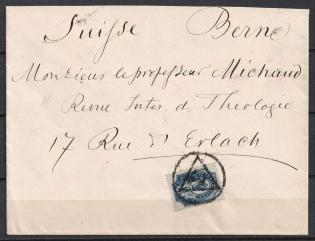 Suisse Berne
Monsieur le professeur Michaud
Revue Inter. d. Theologie
17 Rue d'Erlach